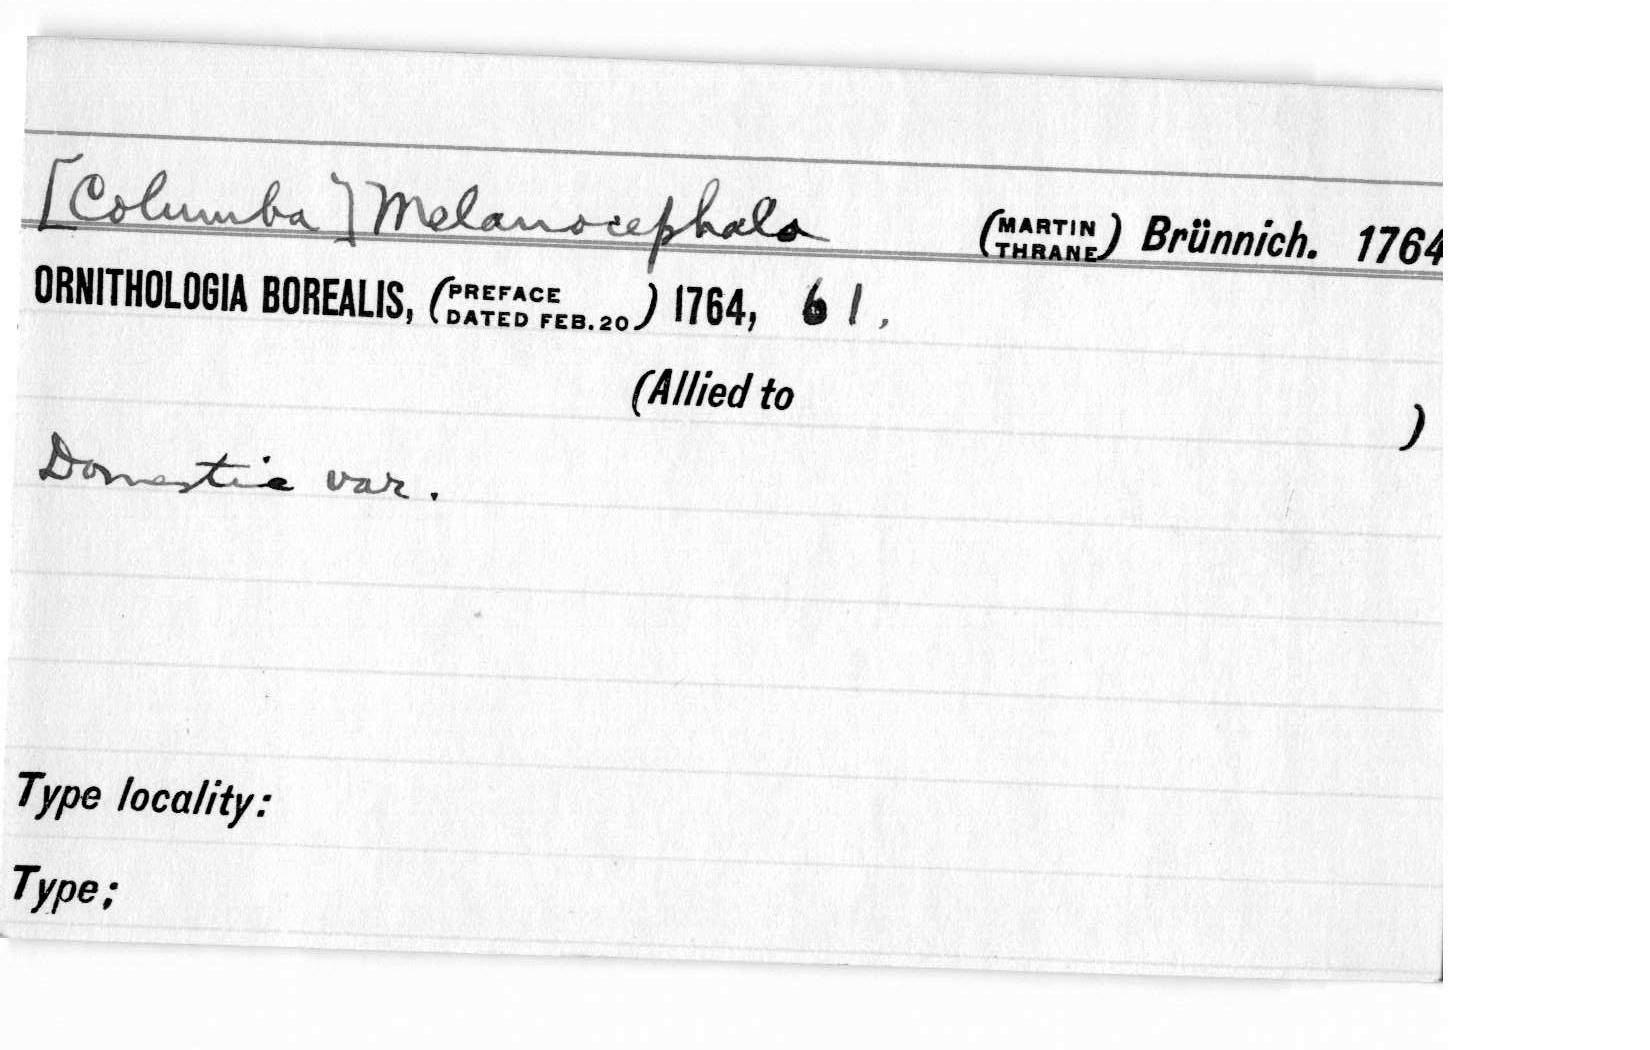 [Columba] Melanocephala (MARTIN THRANE) Brünnich. 1764
ORNITHOLOGIA BOREALIS, (PREFACE DATED FEB. 20) 1764, 61.
(Allied to )
Domestic var.
Type locality:
Type;